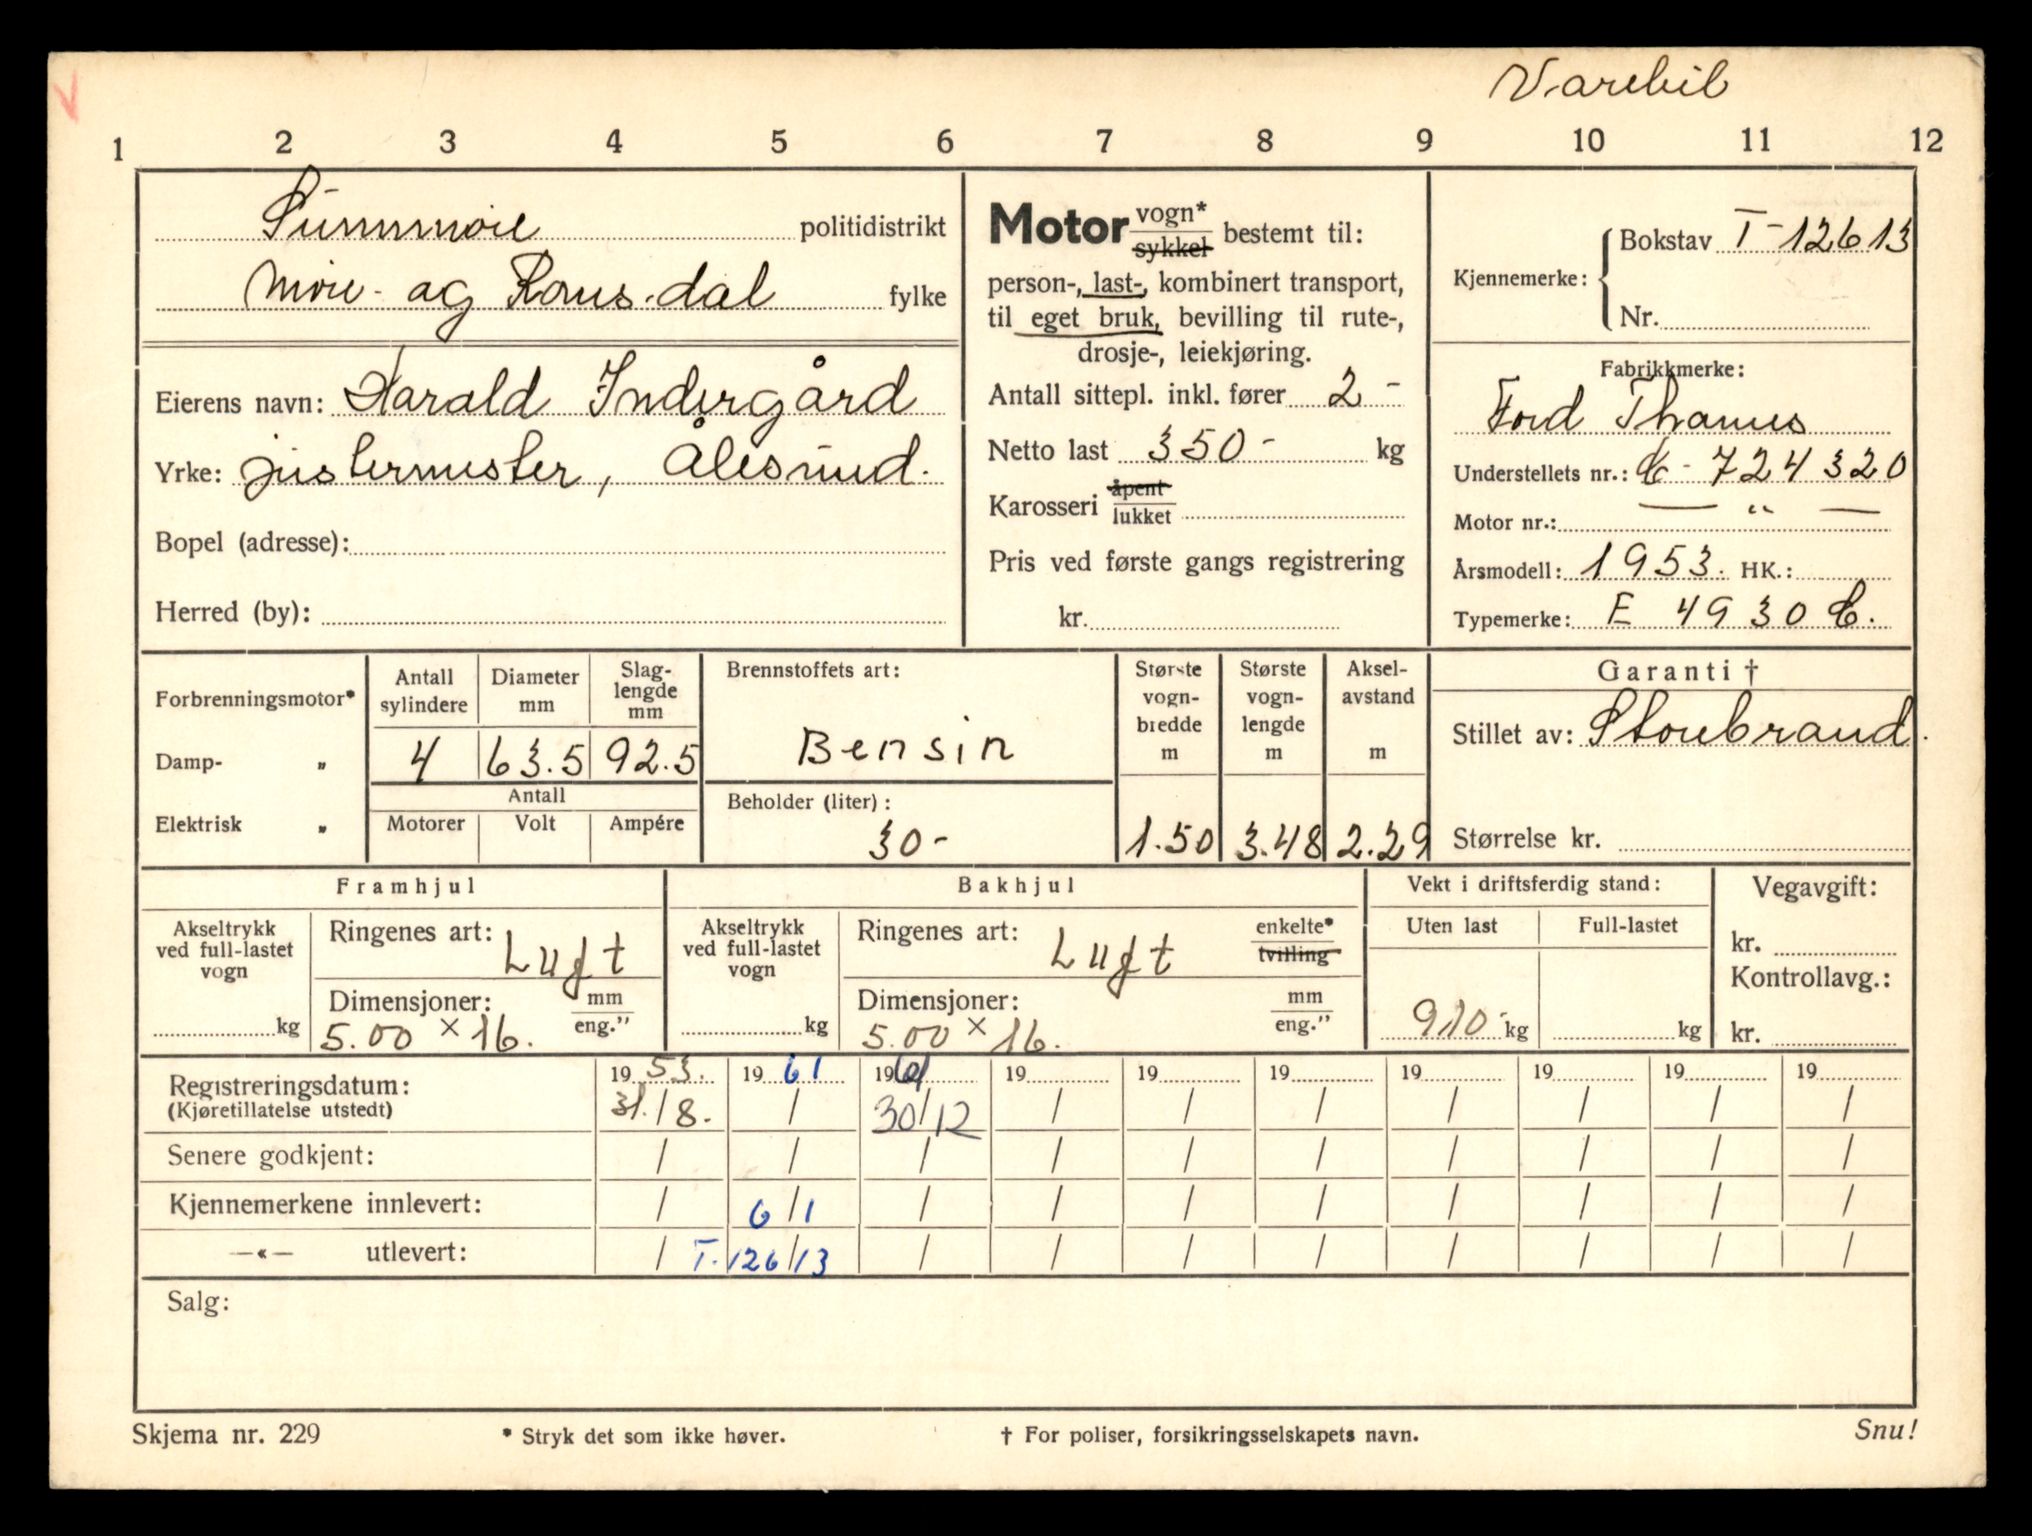 Varebil
1 2 3 4 5 6 7 8 9 10 11 12
Sunnmøre politidistrikt
Møre- og Romsdal fylke
Eierens navn: Harald Indergård
Yrke: justermester, Ålesund.
Bopel (adresse):
Herred (by):
Motor vogn* sykkel bestemt til:
person-, last-, kombinert transport,
til eget bruk, bevilling til rute-,
drosje-, leiekjøring.
Antall sittepl. inkl. fører 2 -
Netto last 350- kg
Karosseri åpent lukket
Pris ved første gangs registrering
kr.
Kjennemerke: Bokstav T-12613
Nr.
Fabrikkmerke:
Ford Thames
Understellets nr.: C - 724320
Motor nr.: — " —
Årsmodell: 1953. HK.:
Typemerke: E 4930 C.
Forbrenningsmotor*
Damp- "
Elektrisk "
Antall sylindere
Diameter mm
Slag-lengde mm
4 63.5 92.5
Antall
Motorer Volt Ampére
Brennstoffets art:
Bensin
Beholder (liter):
30-
Største vogn-bredde m
1.50
Største vogn-lengde m
3.48
Aksel-avstand m
2.29
Garanti †
Stillet av: Storebrand.
Størrelse kr.
Framhjul
Akseltrykk ved full-lastet vogn
kg
Ringenes art: Luft
Dimensjoner: mm eng."
5.00 × 16.
Bakhjul
Akseltrykk ved full-lastet vogn
kg
Ringenes art: Luft enkelte* tvilling
Dimensjoner: mm eng."
5.00 × 16.
Vekt i driftsferdig stand:
Uten last Full-lastet
910- kg kg
Vegavgift:
kr.
Kontrollavg.:
kr.
Registreringsdatum: 19 53. 19 61 19 61 19 19 19 19 19 19 19
(Kjøretillatelse utstedt) 31./8. / 30/12 / / / / / / /
Senere godkjent: / / / / / / / / / /
Kjennemerkene innlevert: / 6/1 / / / / / / / /
—«— utlevert: / T. 126/13 / / / / / / / /
Salg:
Skjema nr. 229 * Stryk det som ikke høver. † For poliser, forsikringsselskapets navn. Snu!